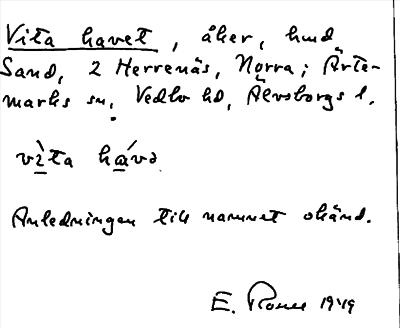 Vita havet, åker, hmd
Sand, 2 Herrenäs, Norra; Ärte-
marks sn, Vedbo hd, Älvsborgs l.
vìta há̱və
Anledningen till namnet okänd.
E. 1949